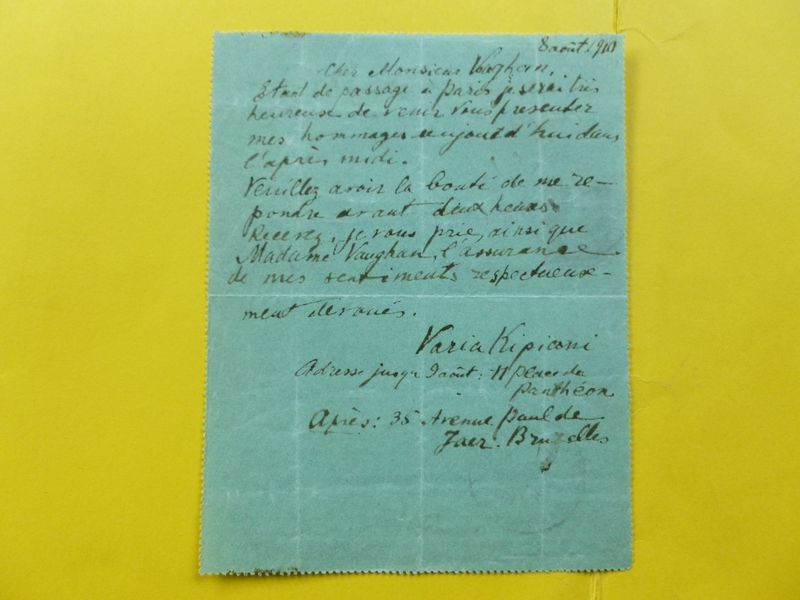 8 août 1910
Cher Monsieur Vaghan,
Etant de passage à Paris je serai très
heureuse de venir vous presenter
mes hommages aujourd'hui dans
l'après midi.
Veuillez avoir la bonté de me re-
pondre avant deux heures
Recevez, je vous prie, ainsi que
Madame Vaughan, l'assurance
de mes sentiments respectueuse-
ment dévoués.
Varia Kipiani
Adresse jusqu 9 août: 11 place du
Panthéon
Après: 35 Avenue Paul de
Jaer. Bruxelles